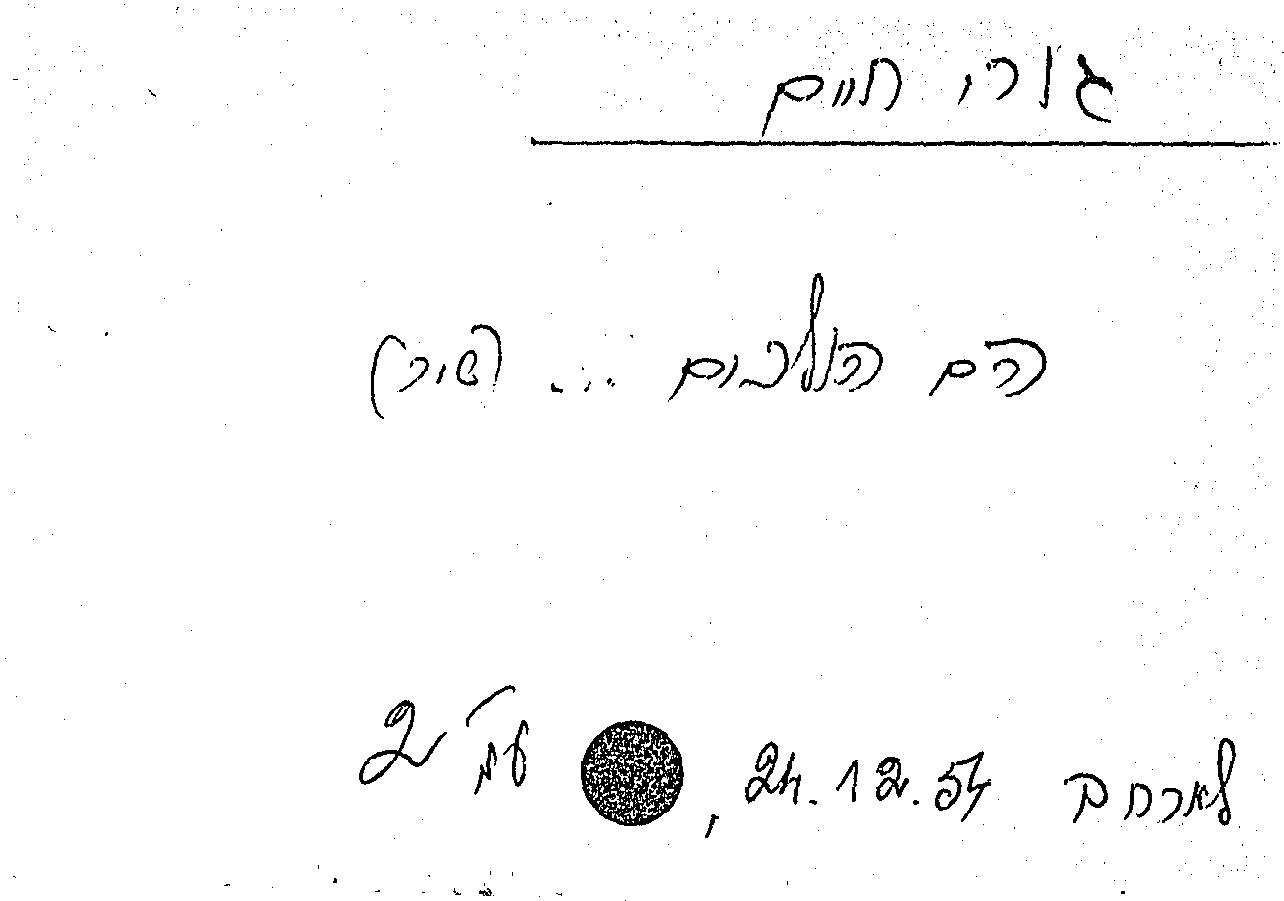 גורי חיים
הם הולכים ... (שיר)
למרחב 24.12.54, עמ' 2